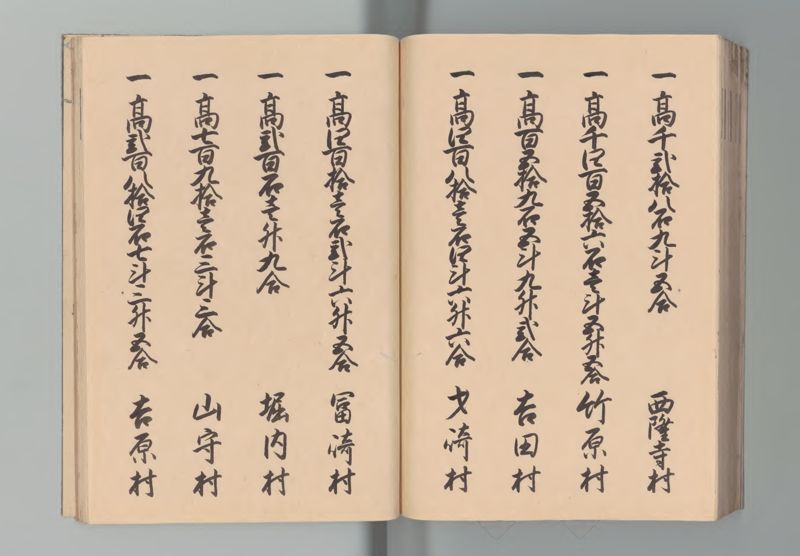 一 高千弐拾八石九斗五合 西隆寺村
一 高千四百五拾六石壱斗五升五合 竹原村
一 高百五拾九石五斗九升弐合 吉田村
一 高四百八拾壱石四斗六升六合 才崎村
一 高四百拾壱石弐斗六升五合 冨崎村
一 高弐百石壱升九合 堀内村
一 高七百九拾壱石三斗三合 山守村
一 高弐百八拾四石七斗三升五合 吉原村